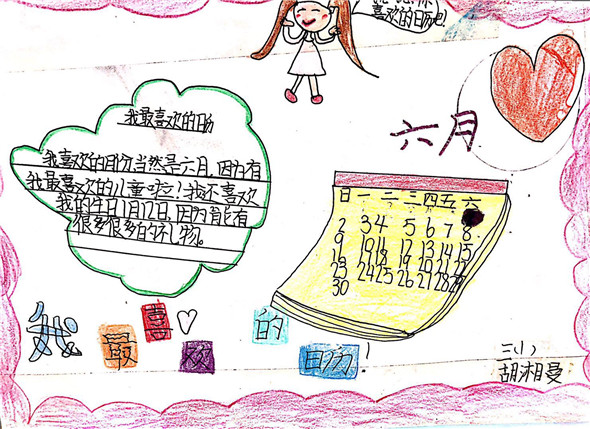 喜欢的日历吧
我最喜欢的日历
我喜欢的月份当然是六月,因为有
我最喜欢的儿童节啦!我不喜欢
我的生日1月12日,因为能有
很多很多的礼物。
六月
日 一 二 三 四 五 六
2 3 4 5 6 7 8
9 10 11 12 13 14 15
16 17 18 19 20 21 22
23 24 25 26 27 28 29
30
我最喜欢的日历!
三(1)
胡湘曼